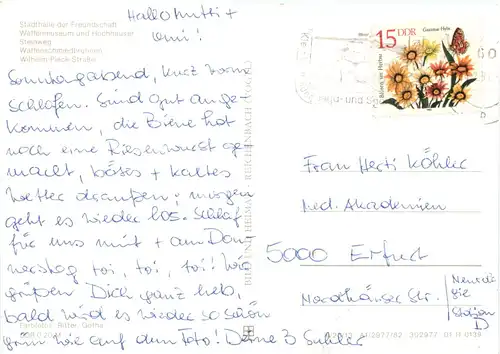 Stadthalle der Freundschaft
Waffenmuseum und Hochhäuser
Steinweg
Waffenschmiedbrunnen
Wilhelm-Pieck-Straße
Hallo Mutti +
Omi!
Sonntagabend, kurz vorm
Schlafen. Sind gut ange-
kommen, die Biene hat
noch eine Riesenwurst ge-
macht, böses + kaltes
Wetter draußen; morgen
geht es wieder los. Schlaf
für uns mit + am Don-
nerstag toi, toi, toi! Wir
grüßen Dich ganz lieb,
bald wird es wieder so schön
grün wie auf dem Foto! Deine 3 Suhler
15 DDR
Gazania Hybr.
Blumen im Herbst
Frau Herti Köhler
Med. Akademien
5000 Erfurt
Nordhäuser Str.
Station
BILD UND HEIMAT REICHENBACH
Farbbild: Ritter, Gotha
A1/2977/82 302977 01 11 0139